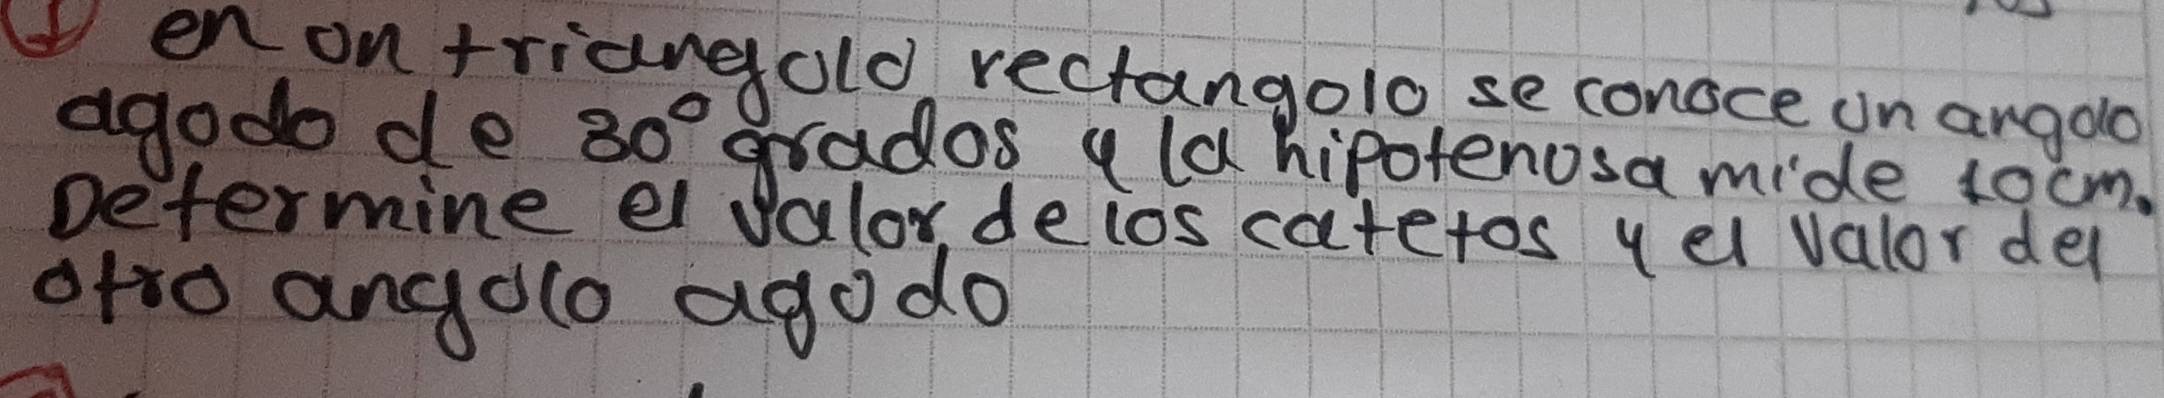 ① en on triangolo rectangolo se conoce un angolo
agodo de 30° grados y la hipotenusa mide 10cm.
Determine el valor, de los catetos y el valor del
otro angolo agodo